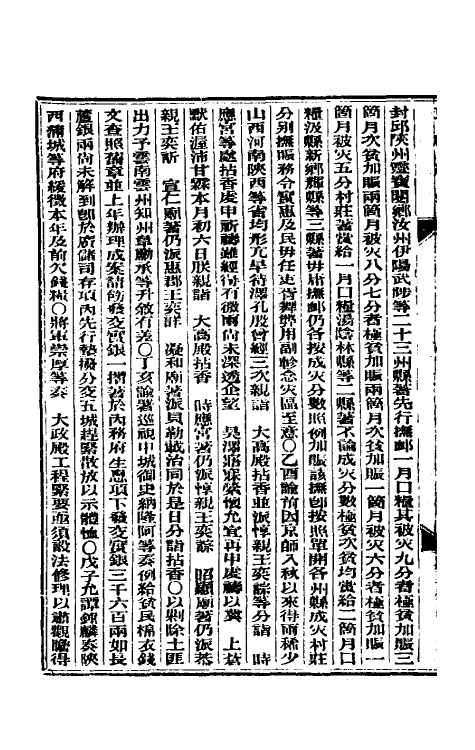 封邱陝州靈寶閿鄉汝州伊陽武陟等二十三州縣著先行撫卹一月口糧其被災九分者極貧加賑三
箇月次貧加賑兩箇月被災八分七分者極貧加賑兩箇月次貧加賑一箇月被災六分者極貧加賑一
箇月被災五分村莊著賞給一月口糧湯陰林縣等二縣著不論成災分數極貧次貧均賞給二箇月口
糧汲縣新鄉輝縣等三縣著毋庸撫卹仍各按成災分數照例加賑該撫卽按照單開各州縣成災村莊
分別撫賑務令實惠及民毋任吏胥舞弊用副軫念災區至意〇乙酉諭前因京師入秋以來得雨稀少
山西河南陝西等省均形亢旱待澤孔殷曾經三次親詣 大高殿拈香並派惇親王奕誴等分詣 時
應宮等處拈香虔申祈禱雖經得有微雨尚未深透企望 昊澤寤寐縈懷允宜再申虔禱以冀 上蒼
默佑渥沛甘霖本月初六日朕親詣 大高殿拈香 時應宮著仍派惇親王奕誴 昭顯廟著仍派恭
親王奕訢 宣仁廟著仍派惠郡王奕詳 凝和廟著派貝勒載治同於是日分詣拈香〇以剿除土匪
出力予雲南雲州知州韋勵承等升敘有差〇丁亥諭著巡視中城御史納隆阿等奏例給貧民棉衣錢
文查照舊章並上年辦理成案請飭發交實銀一摺著於內務府生息項下發交實銀三千六百兩如長
蘆銀兩尚未解到卽於廣儲司存項內先行墊撥分交五城趕緊散放以示體恤〇戊子允譚鍾麟奏陝
西蒲城等府緩徵本年及前欠錢糧〇將軍崇厚等奏 大政殿工程緊要亟須設法修理以肅觀瞻得